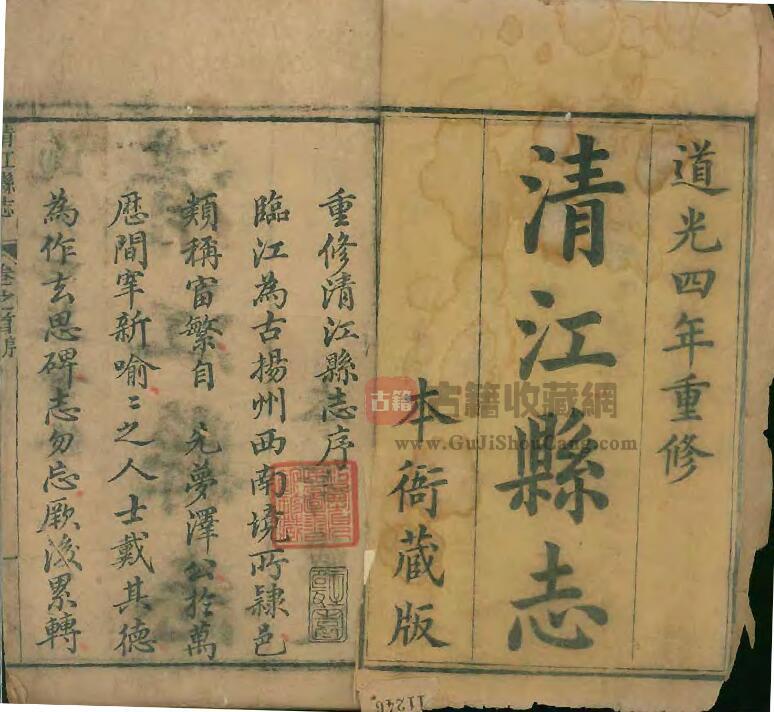 道光四年重修
清江縣志
本衙藏版
重修清江縣志序
臨江為古揚州西南境所隸邑
類稱富繁自 先夢澤公於萬
厯間宰新喻〻之人士戴其德
為作去思碑志勿忘厥後累轉
清江縣志 卷之首序
古籍
古籍收藏網
www.GuJiShouCang.com
11246